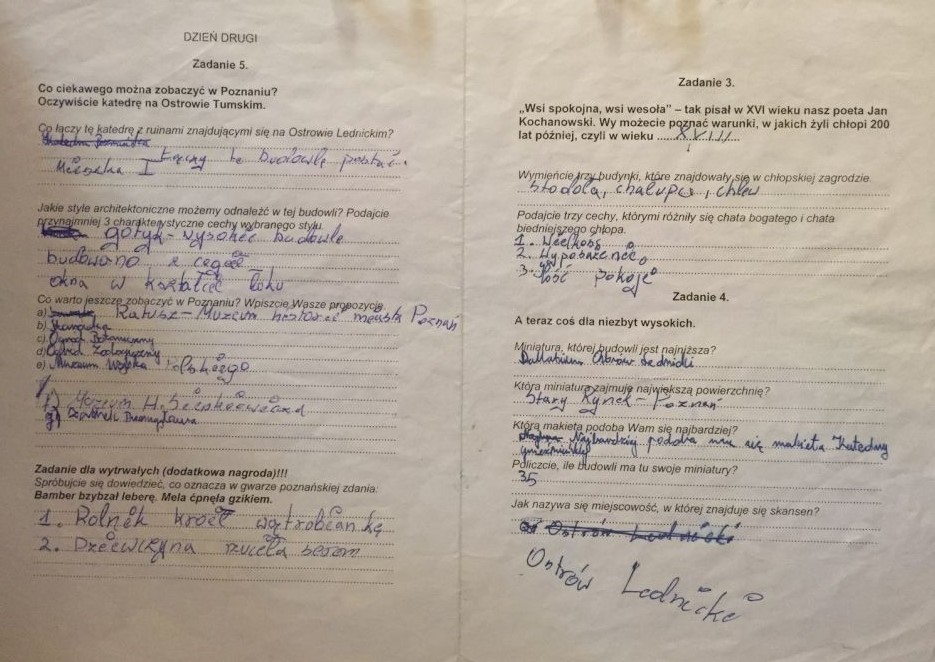 DZIEŃ DRUGI
Zadanie 5.
Co ciekawego można zobaczyć w Poznaniu?
Oczywiście katedrę na Ostrowie Tumskim.
Co łączy tę katedrę z ruinami znajdującymi się na Ostrowie Lednickim?
Łączy te budowle postać
Mieszka I
Jakie style architektoniczne możemy odnaleźć w tej budowli? Podajcie
przynajmniej 3 charakterystyczne cechy wybranego stylu.
gotyk - wysokie budowle
budowano z cegieł
okna w kształcie łuku
Co warto jeszcze zobaczyć w Poznaniu? Wpiszcie Wasze propozycje.
a) Ratusz - Muzeum historii miasta Poznań
b)
c) Ogród Botaniczny
d) Ogród Zoologiczny
e) Muzeum Wojska Polskiego
f) Muzeum H. Sienkiewicza
g)
Zadanie dla wytrwałych (dodatkowa nagroda)!!!
Spróbujcie się dowiedzieć, co oznacza w gwarze poznańskiej zdania:
Bamber bzybzał leberę. Mela ćpnęła gzikiem.
1. Rolnik kroił wątrobiankę
2. Dziewczyna rzuciła serem
Zadanie 3.
„Wsi spokojna, wsi wesoła” – tak pisał w XVI wieku nasz poeta Jan
Kochanowski. Wy możecie poznać warunki, w jakich żyli chłopi 200
lat później, czyli w wieku XVIII
Wymieńcie trzy budynki, które znajdowały się w chłopskiej zagrodzie.
Stodoła, chałupa, chlew
Podajcie trzy cechy, którymi różniły się chata bogatego i chata
biedniejszego chłopa.
1. Wielkość
2. Wyposażenie
3. Ilość pokoji
Zadanie 4.
A teraz coś dla niezbyt wysokich.
Miniatura, której budowli jest najniższa?
Palatium Ostrów Lednicki
Która miniatura zajmuje największą powierzchnię?
Stary Rynek - Poznań
Która makieta podoba Wam się najbardziej?
Najbardziej podoba mi się makieta Katedry
gnieźnieńskiej
Policzcie, ile budowli ma tu swoje miniatury?
35
Jak nazywa się miejscowość, w której znajduje się skansen?
Ostrów Lednicki
Ostrów Lednicki